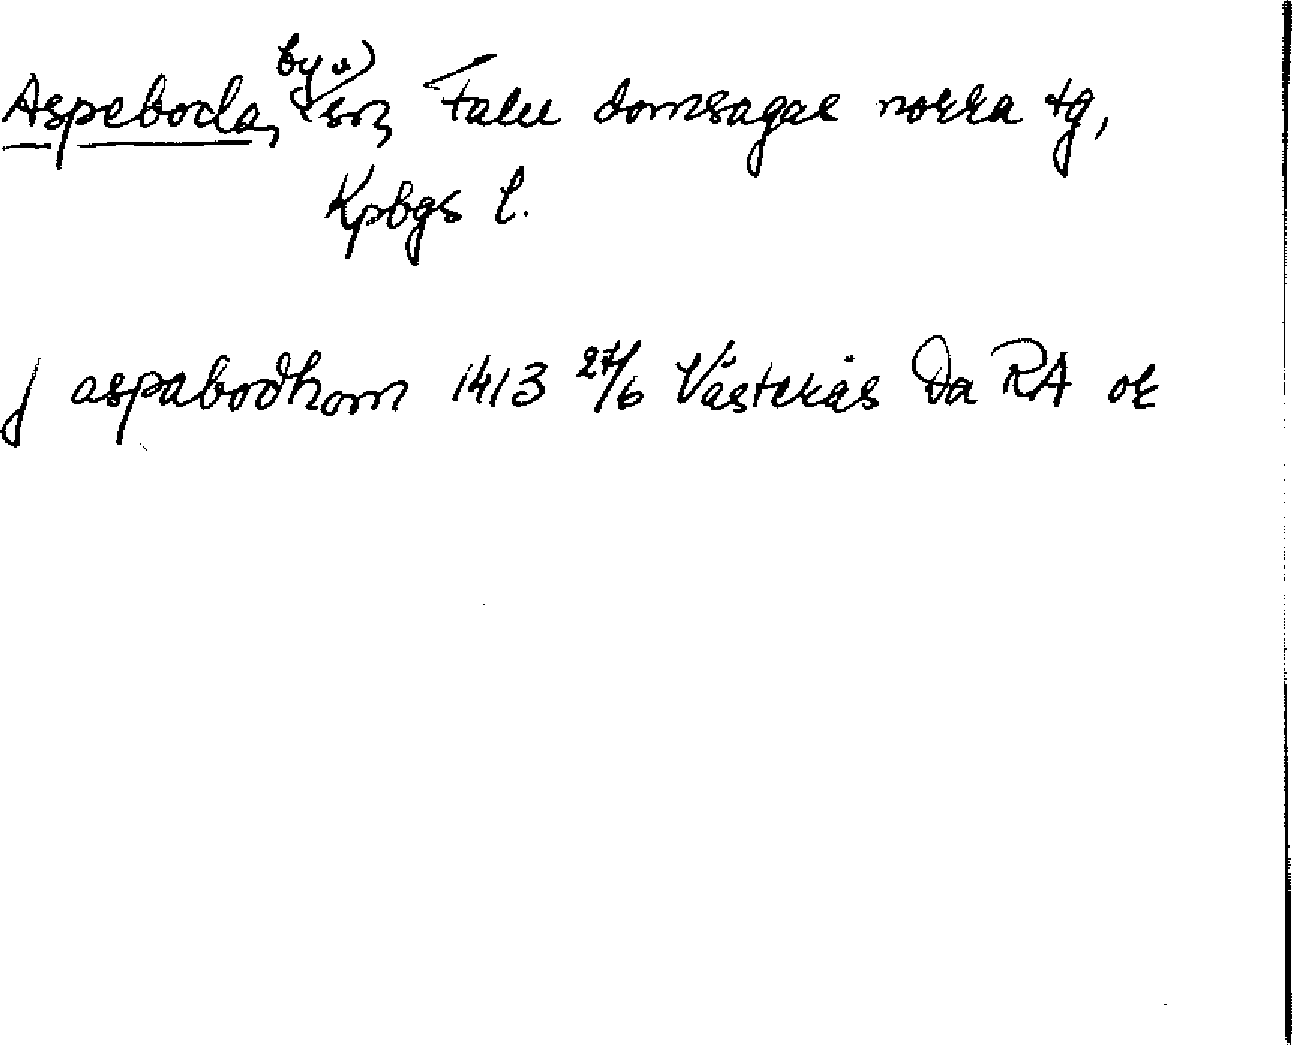 by o)
Aspeboda, sn, Falu domsagas norra tg,
Kpbgs l.
j aspabodhom 1413 27/6 Västerås Da RA or